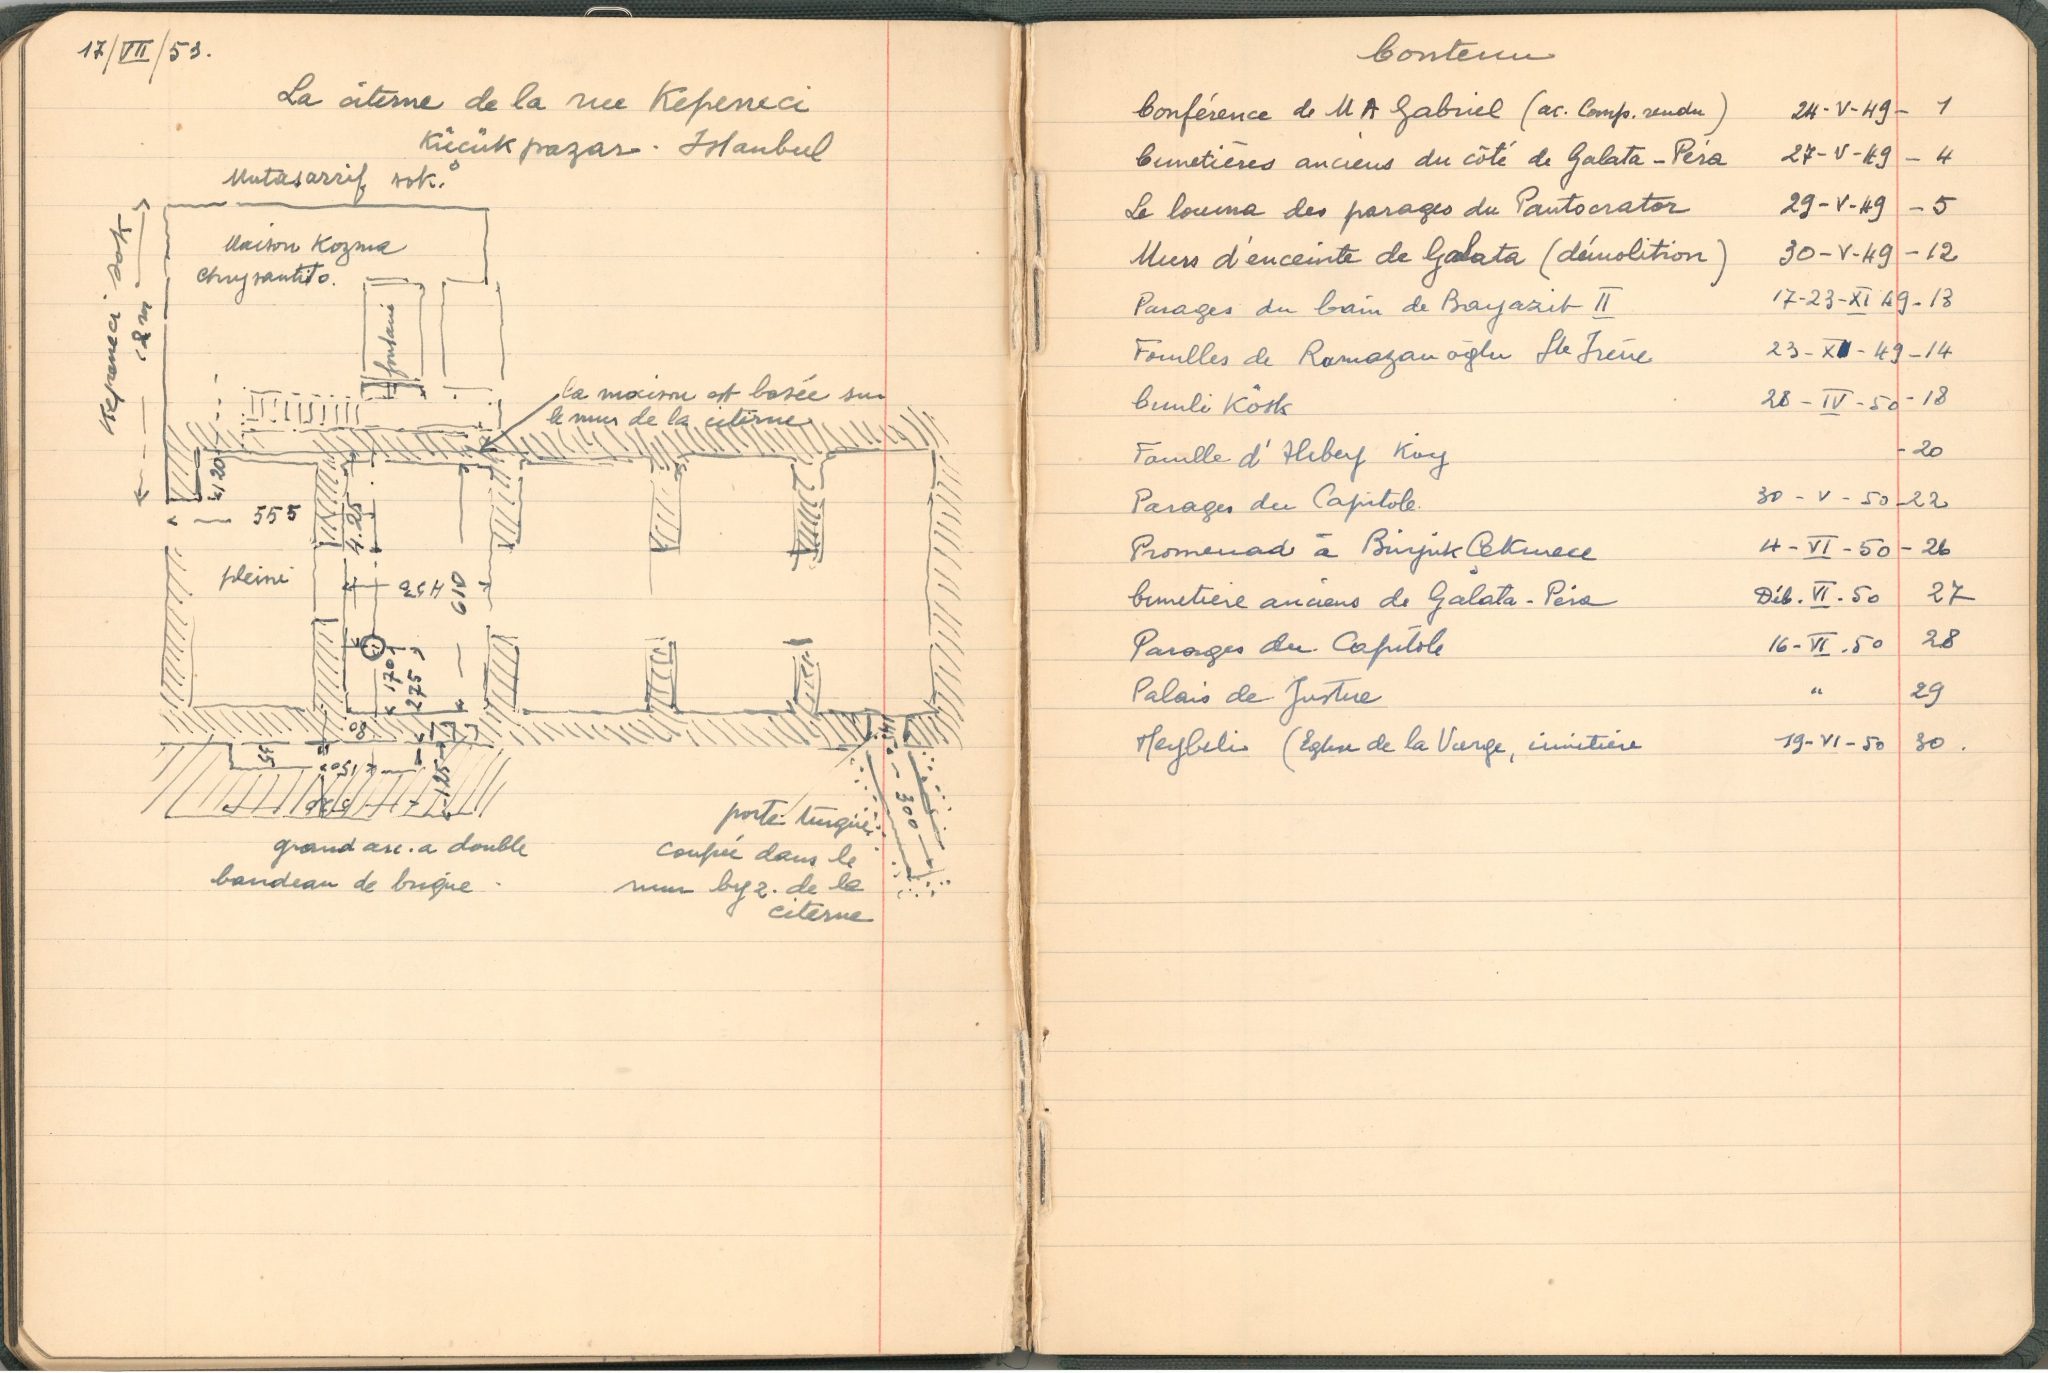 17/VII/53.
La citerne de la rue Kepeneci
Kücük pazar. Istanbul
Mutasarrif sok.
Kepeneci sok
Maison Kozma
Chrysantito.
fontaine
la maison est basée sur
le mur de la citerne
120
555
4.25
pleine
453
610
170
275
80
55
150
125
145
300
grand arc a double
bandeau de brique
porte turque
coupée dans le
mur byz. de la
citerne
Contenu
Conférence de M A Gabriel (ac. Comp. rendu) 24-V-49- 1
Cimetières anciens du côté de Galata-Péra 27-V-49 - 4
Le des parages du Pantocrator 29-V-49 - 5
Murs d'enceinte de Galata (démolition) 30-V-49 - 12
Parages du bain de Bayazit II 17-23-XI 49-13
Fouilles de Ramazan oğlu Ste Irène 23-XI-49-14
Cinili Kösk 28-IV-50-18
Fouille d' Kioy -20
Parages du Capitole. 30-V-50-22
Promenad à Büyük Cekmece 4-VI-50-26
Cimetière anciens de Galata-Péra Déb. VI. 50 27
Parages du Capitole 16-VI.50 28
Palais de Justice " 29
Heybeli (Eglise de la Vierge, cimetière 19-VI-50 30.